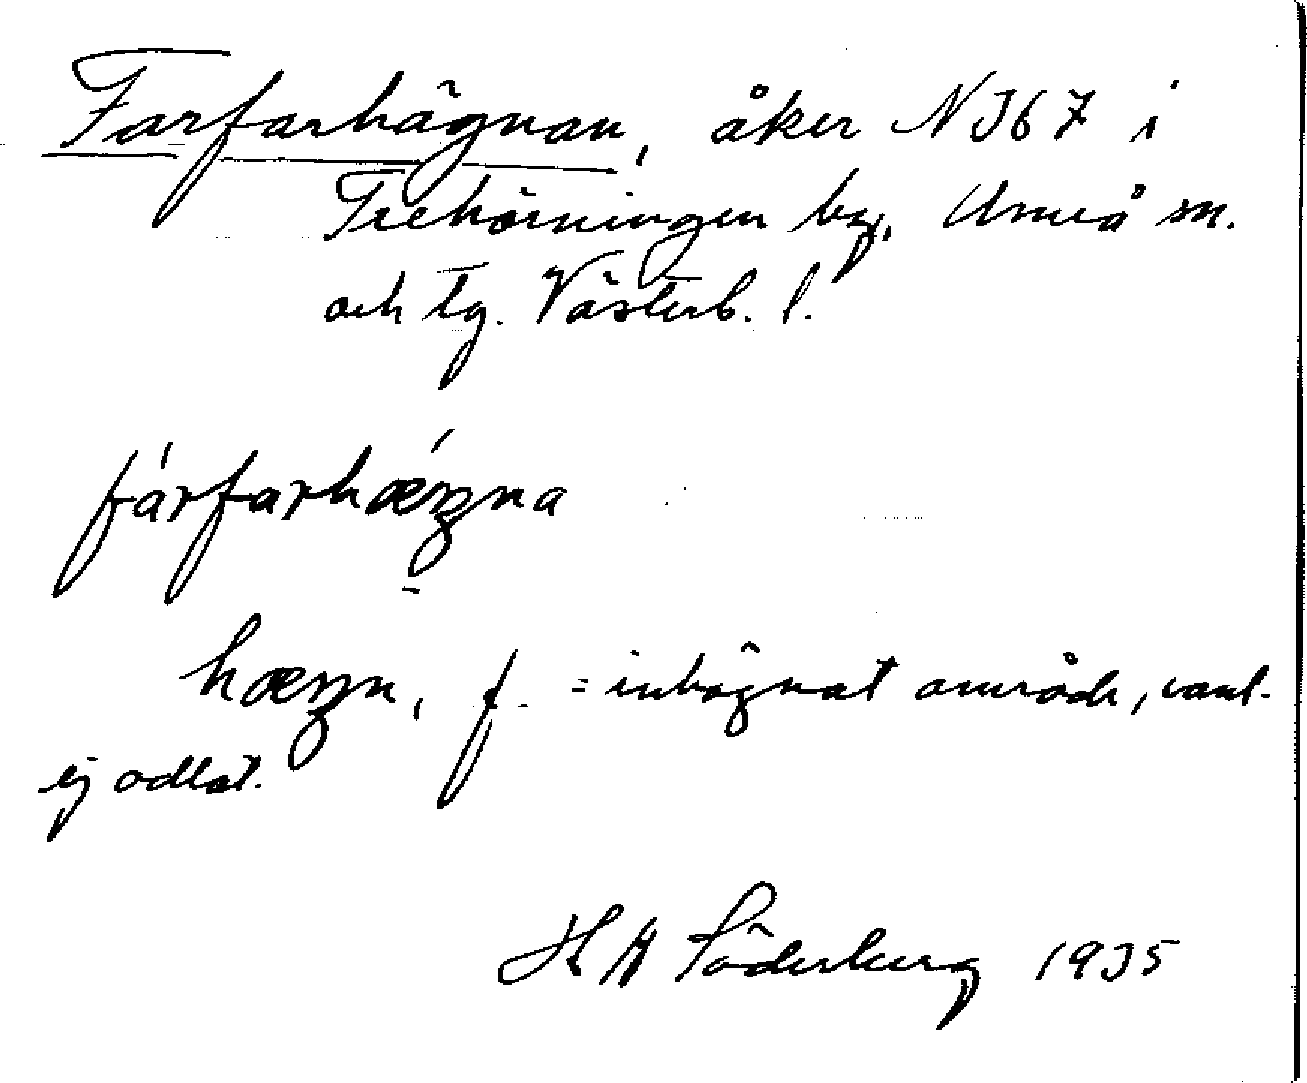 Farfarhägnan, åker N 367 i
Trehörningen by, Umeå sn.
och tg. Västerb. l.
fárfarhæŋna
hæŋn, f. = inhägnat område, vanl.
ej odlat.
H A Söderberg 1935